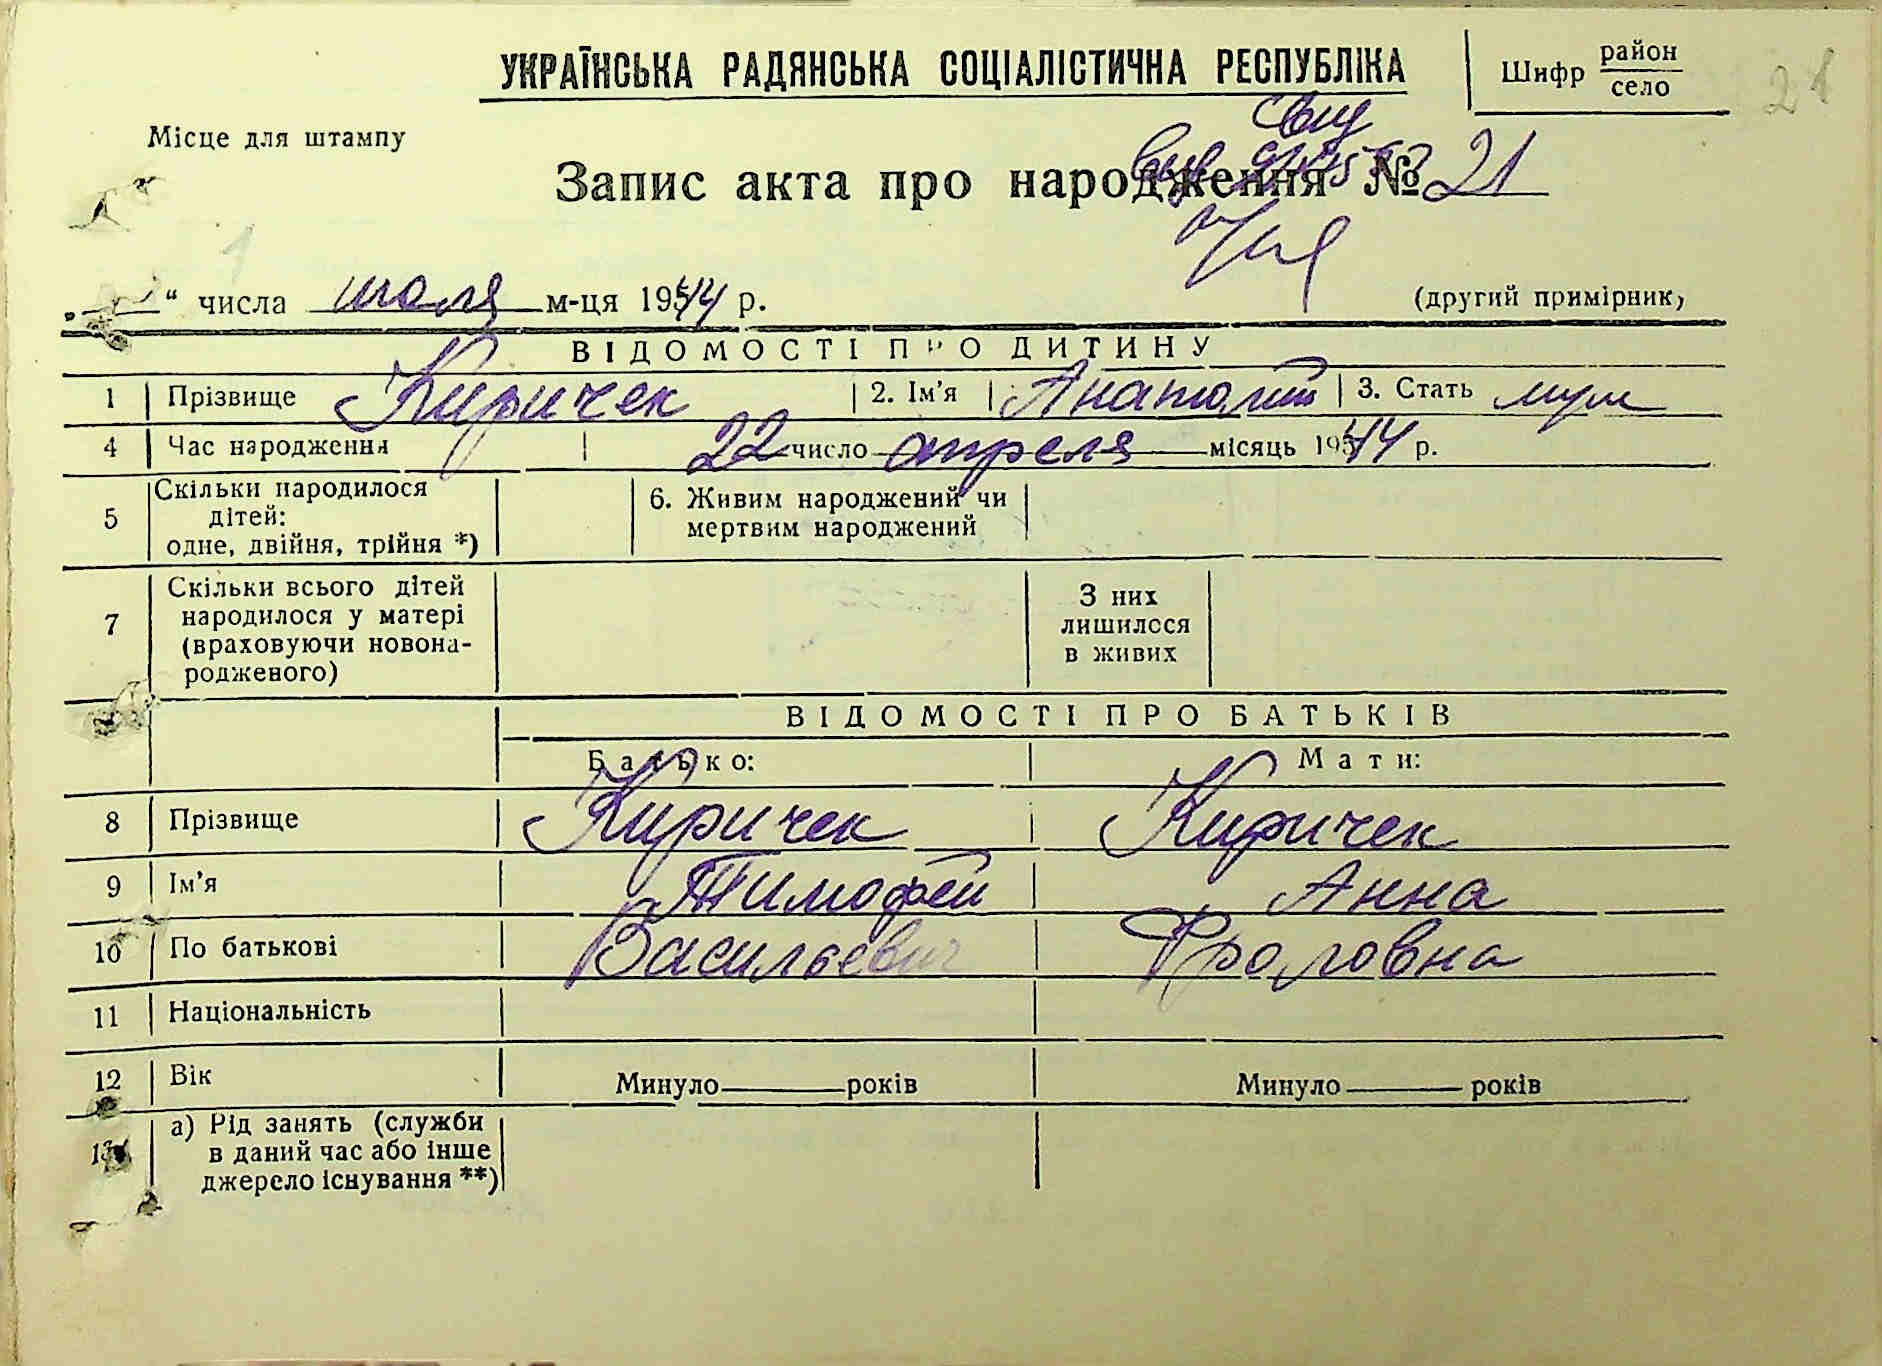 УКРАЇНСЬКА РАДЯНСЬКА СОЦІАЛІСТИЧНА РЕСПУБЛІКА
Шифр район
село
21
Місце для штампу
Запис акта про народження № 21
“ числа июля м-ця 1944 р.
(другий примірник)
ВІДОМОСТІ ПРО ДИТИНУ
1 Прізвище Киричек 2. Ім'я Анатолий 3. Стать муж
4 Час народження 22 число апреля місяць 1944 р.
5 Скільки народилося дітей: одне, двійня, трійня *) 6. Живим народжений чи мертвим народжений
7 Скільки всього дітей народилося у матері (враховуючи новона-родженого) З них лишилося в живих
ВІДОМОСТІ ПРО БАТЬКІВ
Батько: Мати:
8 Прізвище Киричек Киричек
9 Ім'я Тимофей Анна
10 По батькові Васильевич Фроловна
11 Національність
12 Вік Минуло років Минуло років
13 а) Рід занять (служби в даний час або інше джерело існування **)